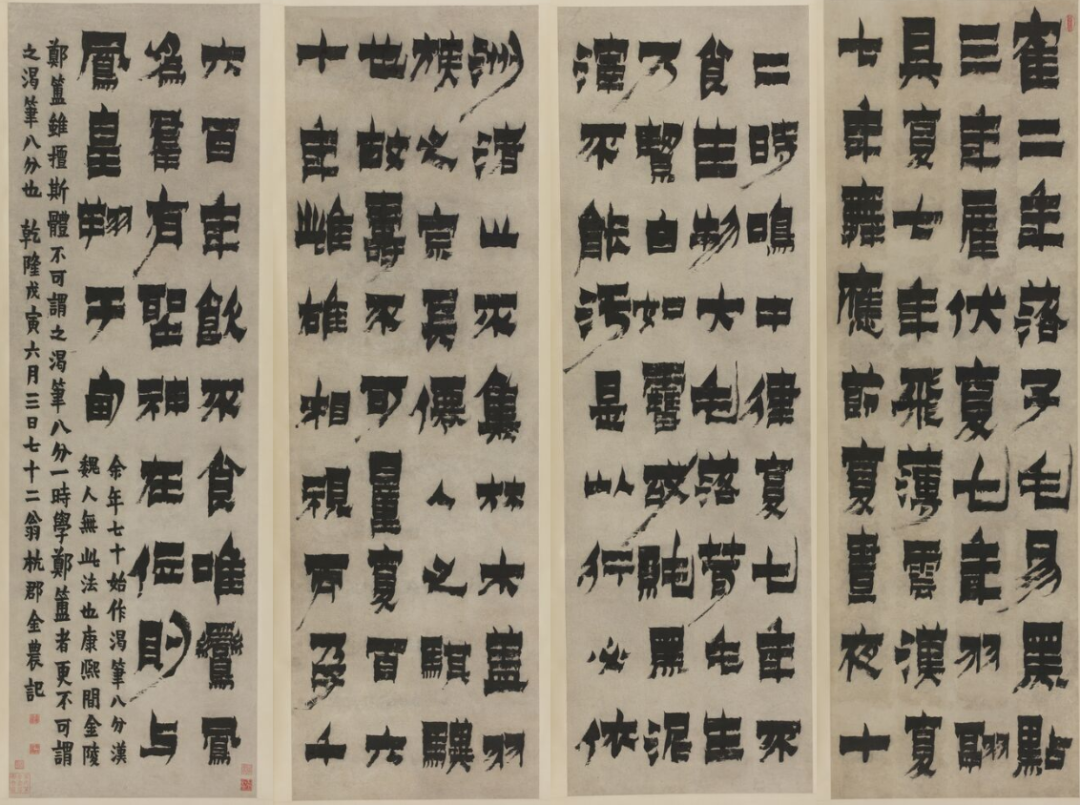 隺二年落子毛易黑點
三年產伏夏七年羽翮
具夏七年飛薄雲漢夏
七年舞應節夏晝夜十
二時鳴中律夏七年不
食生物大毛落茸毛生
乃絜白如雪故純黑泥
渾不能污是以行必依
洲渚止不集林木蓋羽
族之宗真僊人之騏驥
也故壽不可量夏百六
十年雌雄相視而孕千
六百年飲不食唯鸞鳳
為羣有聖神在位則与
鳳皇翔于甸
余年七十始作渴筆八分漢
魏人無此法也康熙間金陵
鄭簠雖擅斯體不可謂之渴筆八分一時學鄭簠者更不可謂
之渴筆八分也 乾隆戊寅六月三日七十二翁杭郡金農記